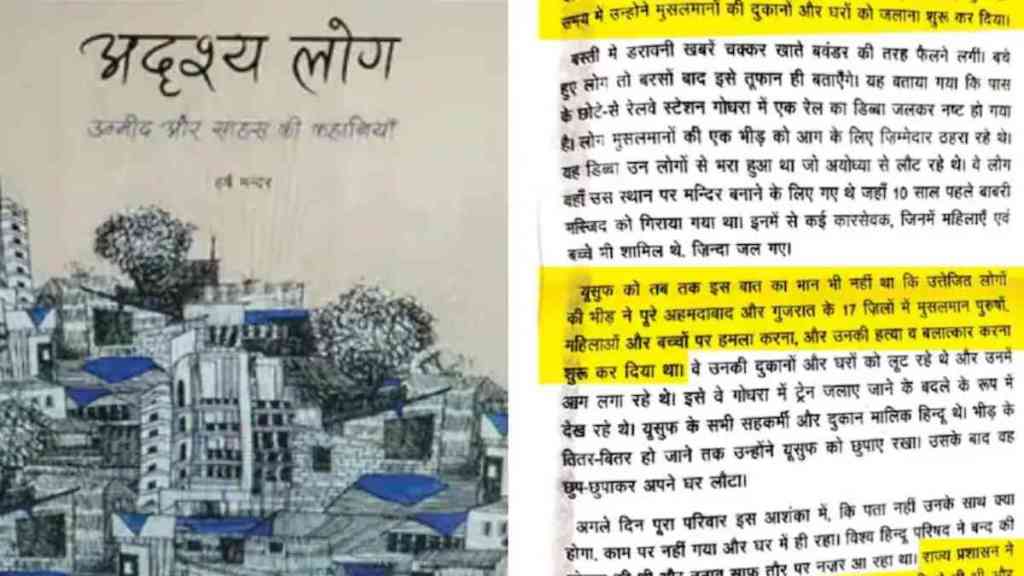 अदृश्य लोग
उम्मीद और साहस की कहानियाँ
हर्ष मन्दर
समय में उन्होंने मुसलमानों की दुकानों और घरों को जलाना शुरू कर दिया।
बस्ती में डरावनी खबरें चक्कर खाते बवंडर की तरह फैलने लगीं। बचे
हुए लोग तो बरसों बाद इसे तूफान ही बताएँगे। यह बताया गया कि पास
के छोटे-से रेलवे स्टेशन गोधरा में एक रेल का डिब्बा जलकर नष्ट हो गया
है। लोग मुसलमानों की एक भीड़ को आग के लिए ज़िम्मेदार ठहरा रहे थे।
यह डिब्बा उन लोगों से भरा हुआ था जो अयोध्या से लौट रहे थे। वे लोग
वहाँ उस स्थान पर मन्दिर बनाने के लिए गए थे जहाँ 10 साल पहले बाबरी
मस्जिद को गिराया गया था। इनमें से कई कारसेवक, जिनमें महिलाएँ एवं
बच्चे भी शामिल थे, ज़िन्दा जल गए।
यूसुफ को तब तक इस बात का भान भी नहीं था कि उत्तेजित लोगों
की भीड़ ने पूरे अहमदाबाद और गुजरात के 17 ज़िलों में मुसलमान पुरुषों,
महिलाओं और बच्चों पर हमला करना, और उनकी हत्या व बलात्कार करना
शुरू कर दिया था। वे उनकी दुकानों और घरों को लूट रहे थे और उनमें
आग लगा रहे थे। इसे वे गोधरा में ट्रेन जलाए जाने के बदले के रूप में
देख रहे थे। यूसुफ के सभी सहकर्मी और दुकान मालिक हिन्दू थे। भीड़ के
तितर-बितर हो जाने तक उन्होंने यूसुफ को छुपाए रखा। उसके बाद वह
छुप-छुपाकर अपने घर लौटा।
अगले दिन पूरा परिवार इस आशंका में, कि पता नहीं उनके साथ क्या
होगा, काम पर नहीं गया और घर में ही रहा। विश्व हिन्दू परिषद ने बन्द की
और तनाव साफ़ तौर पर नज़र आ रहा था। राज्य प्रशासन ने